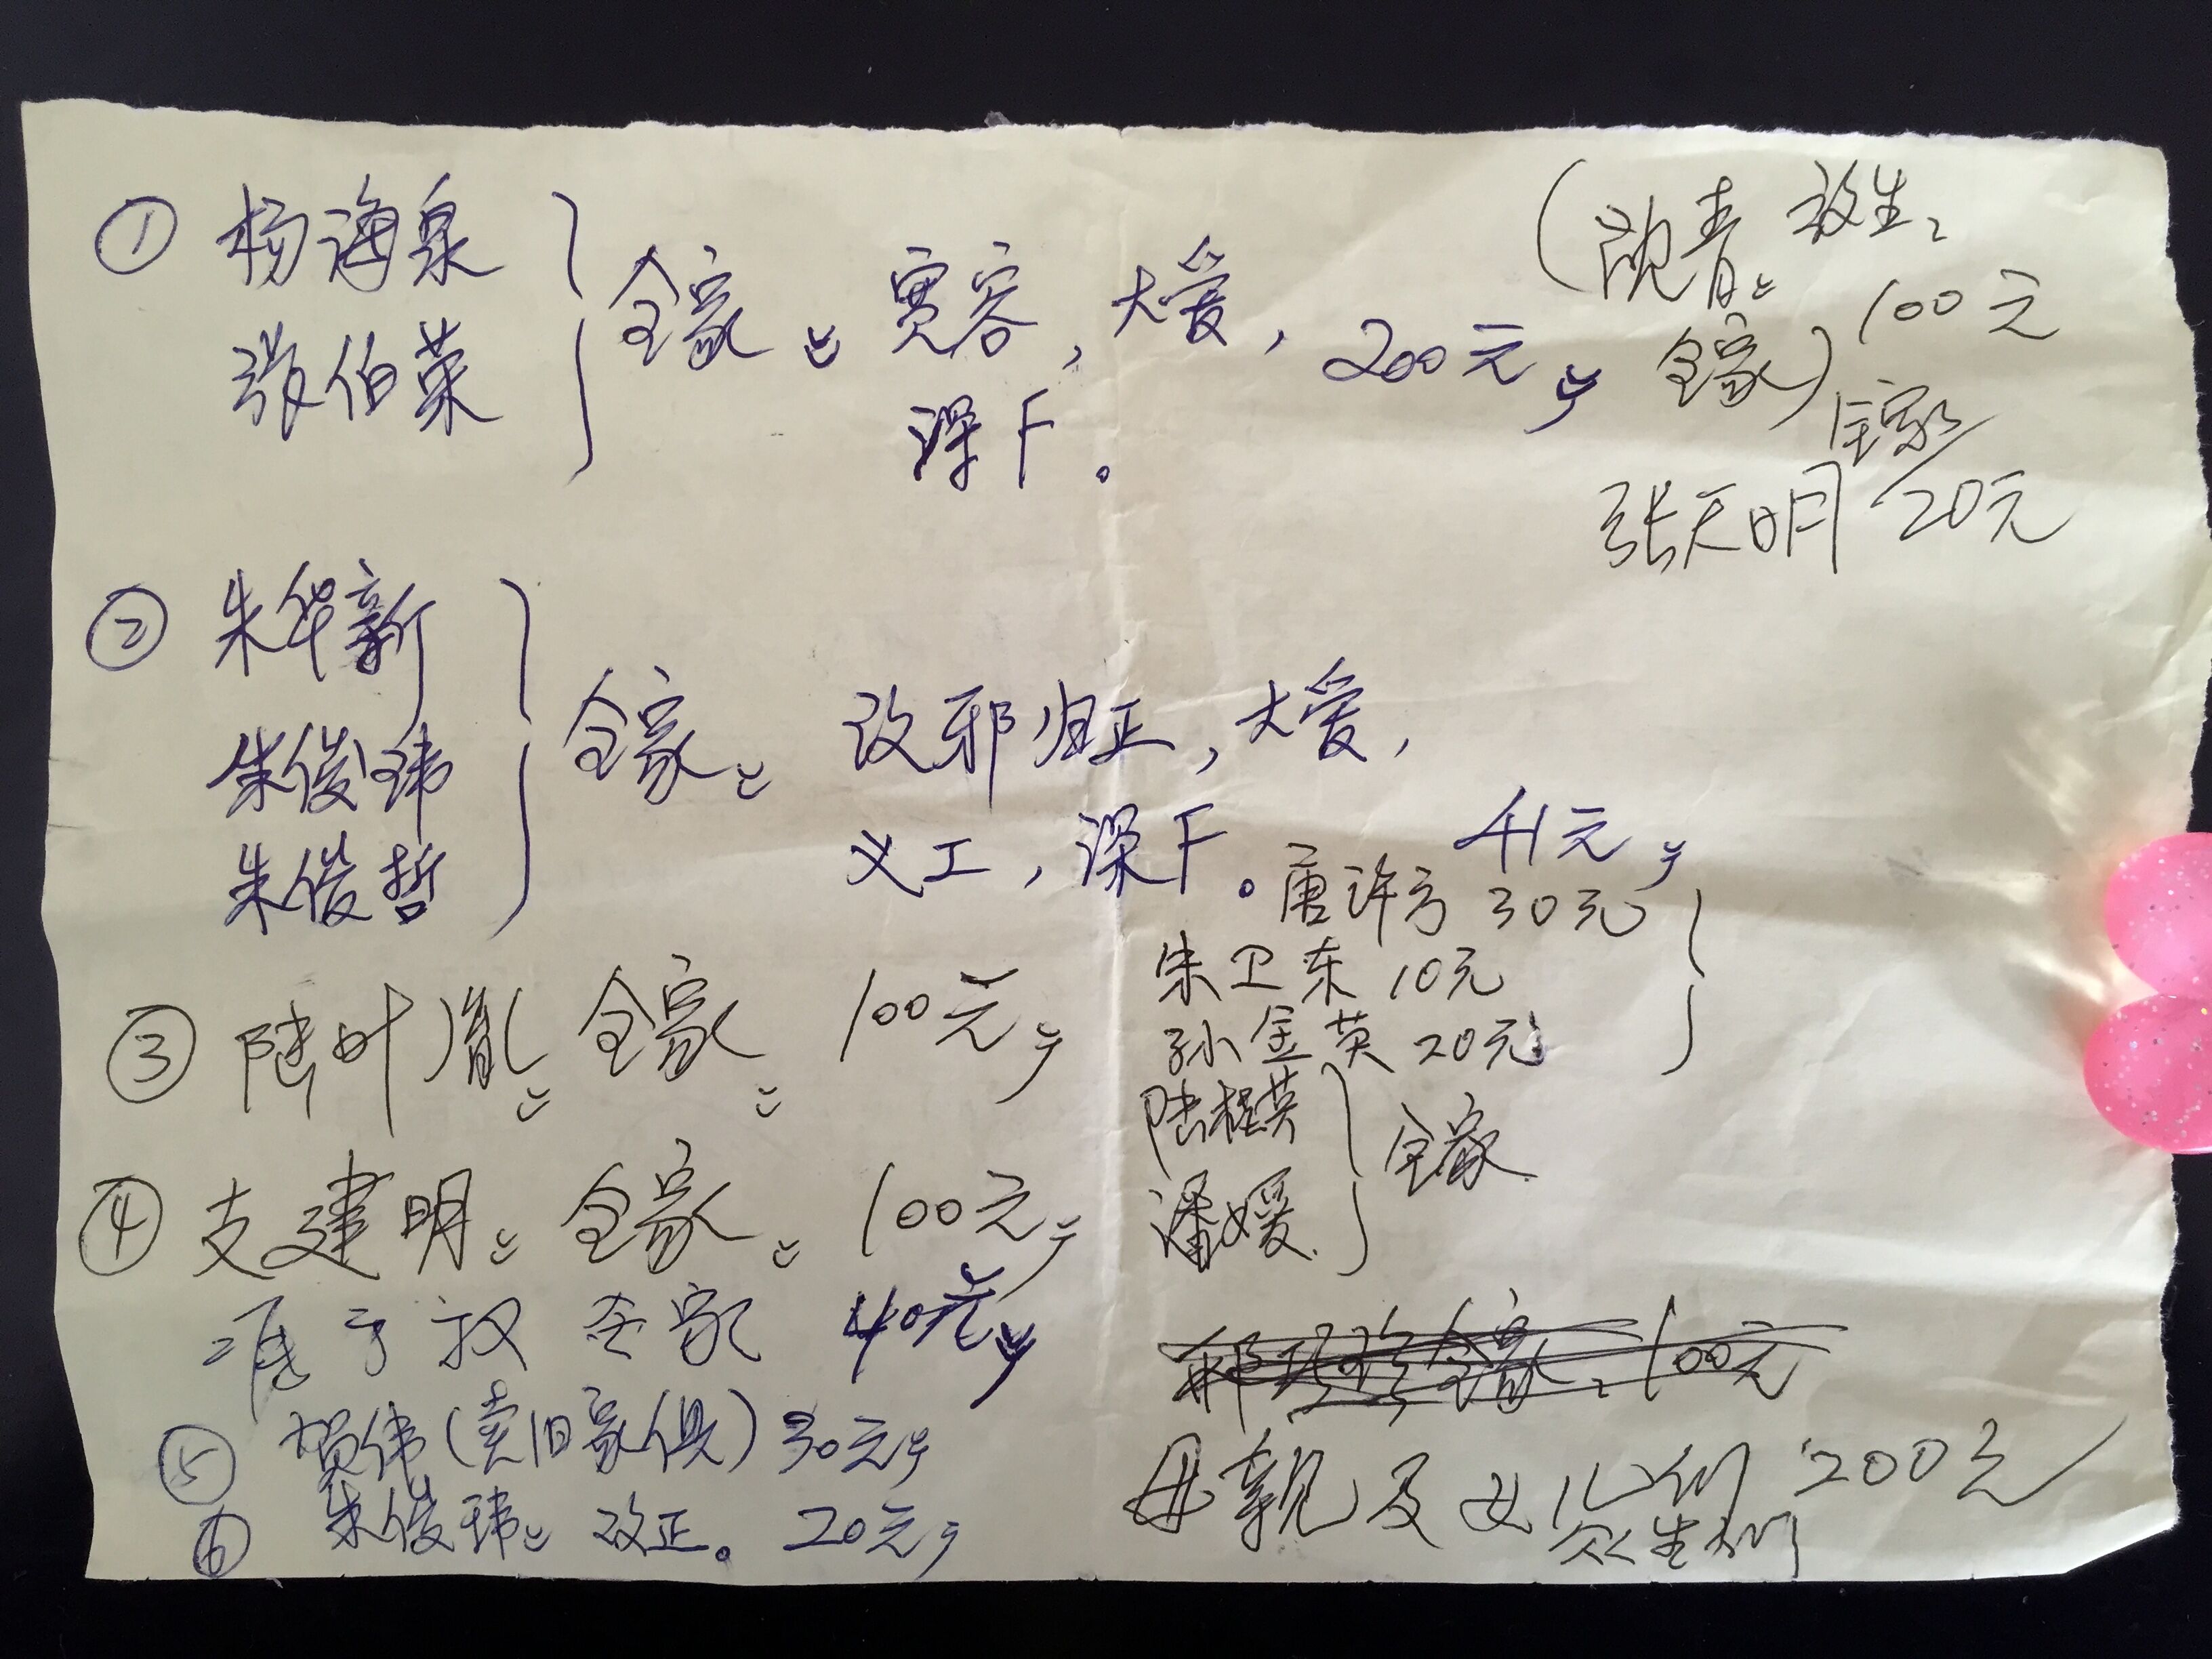 ① 杨海泉
张伯荣
全家 宽容, 大爱, 200元
深F。
(沈青 放生, 100元
全家)
全家
张天明 20元
② 朱华新
朱俊玮
朱俊哲
全家 改邪归正, 大爱,
义工, 深F。 41元
唐许方 30元
朱卫东 10元
孙金英 20元
③ 陆叶胤 全家 100元
陆程英
潘媛
全家
④ 支建明 全家 100元
全家 40元
全家 100元
⑤ 贺伟(卖旧家俱) 30元
⑥ 朱俊玮 改正。 20元
母亲及女儿们 200元
众生们